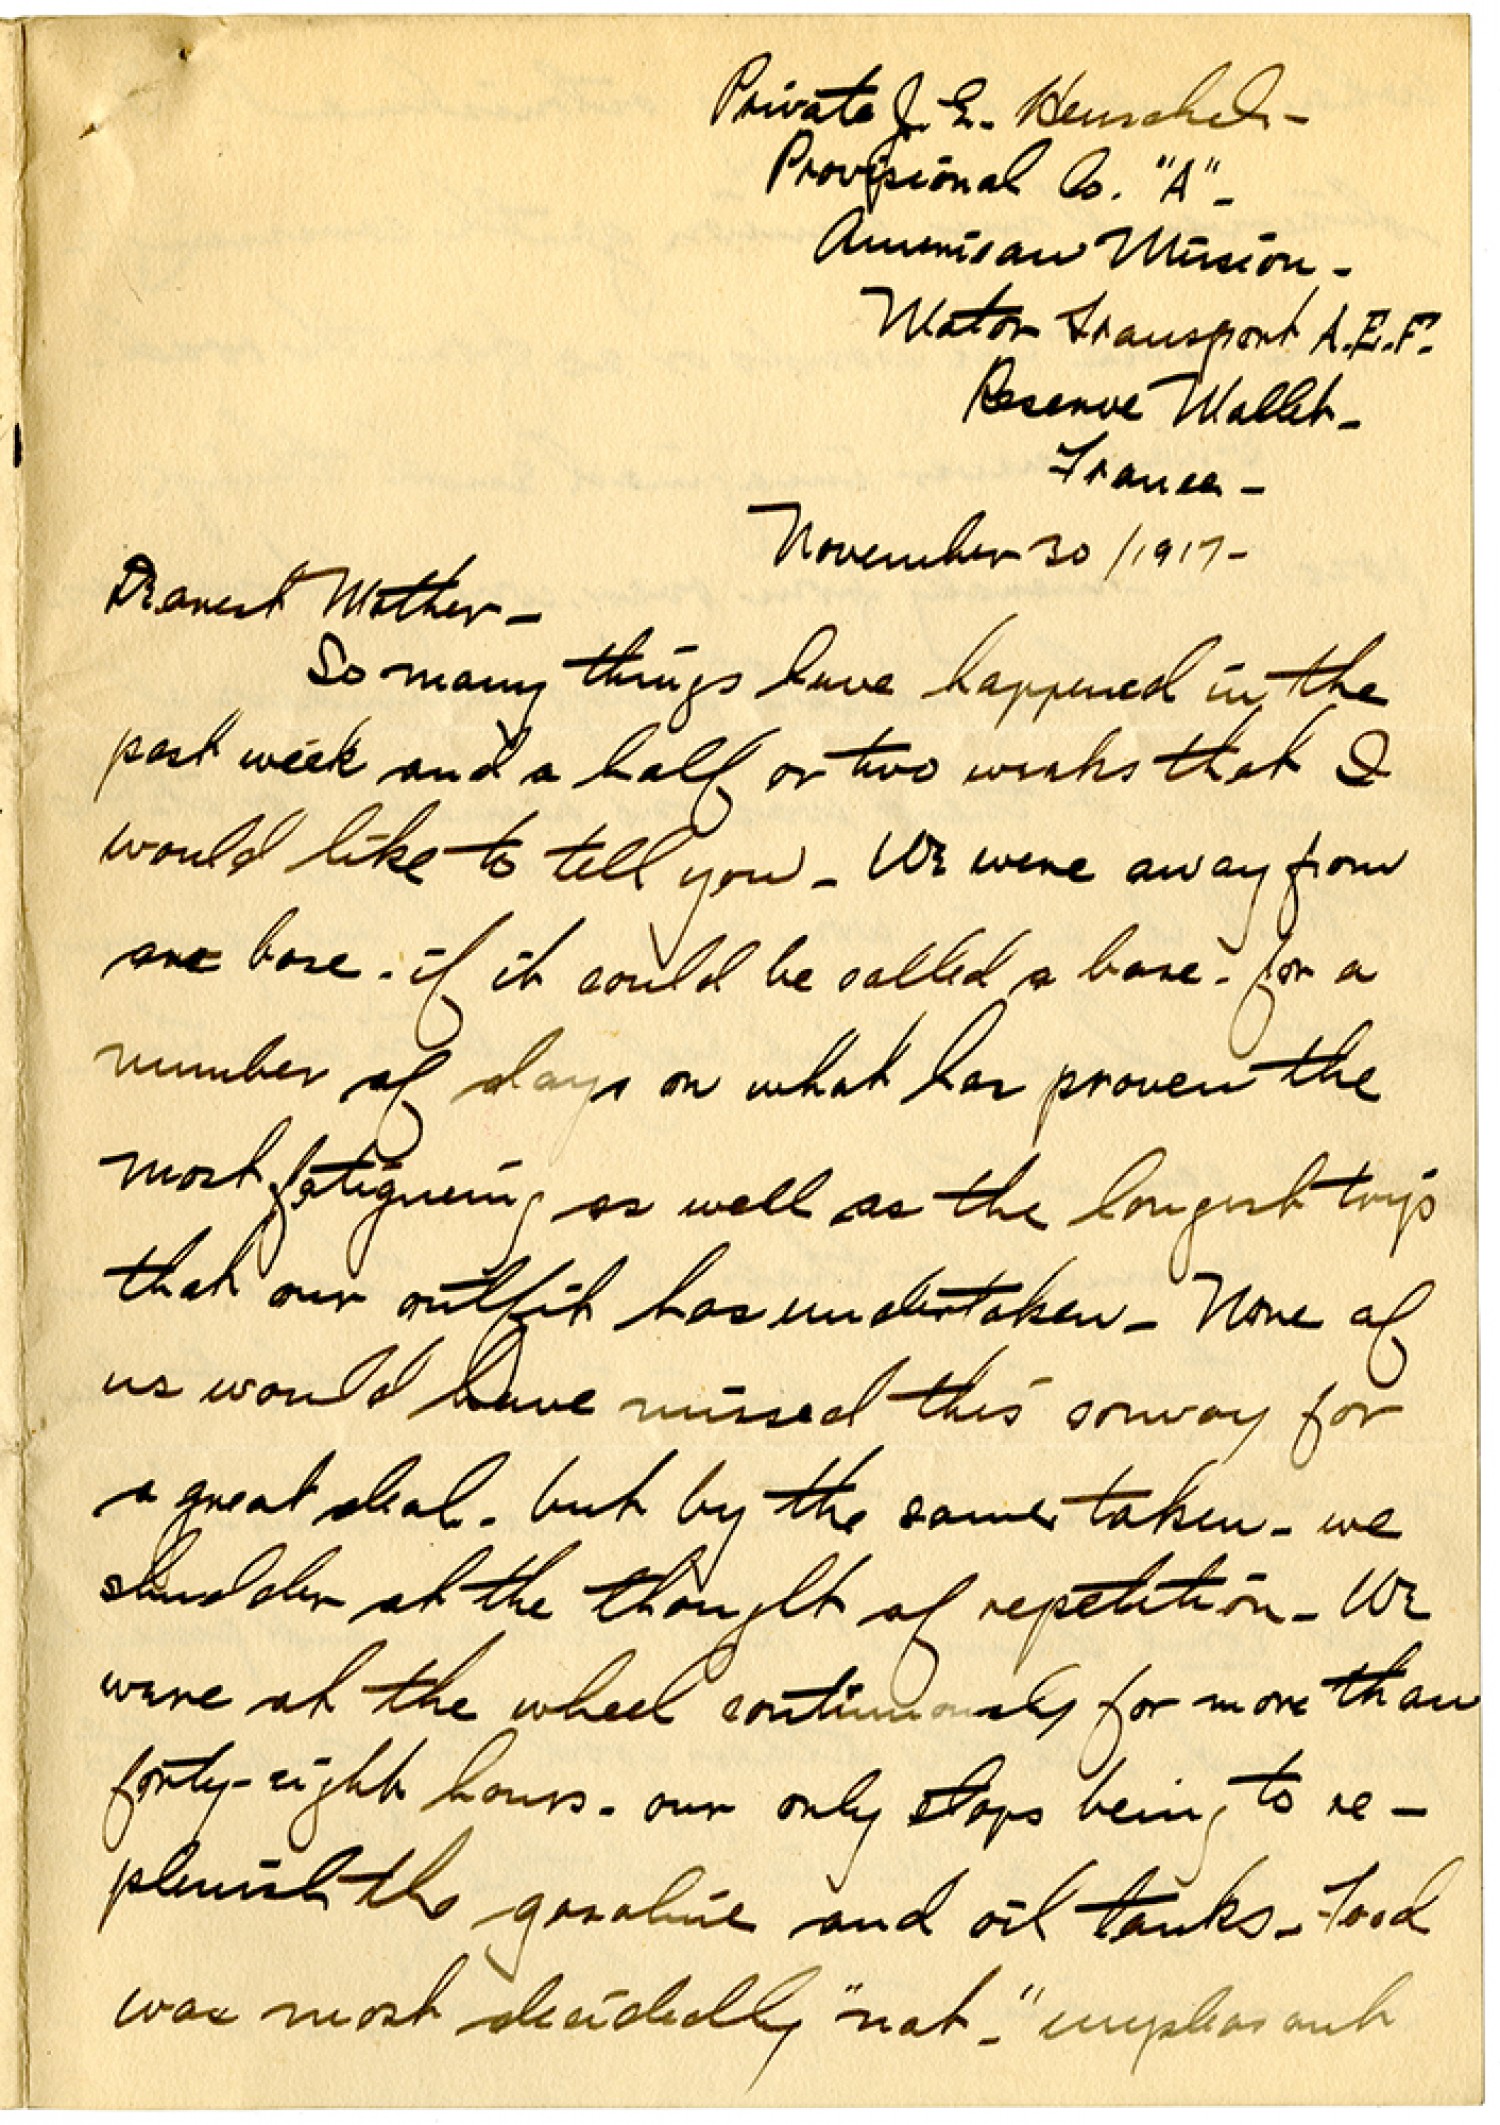 Private J. E. Henschel -
Provisional Co. "A" -
American Mission -
Motor Transport A.E.F.
Reserve Mallet -
France -
November 30/1917 -
Dearest Mother -
So many things have happened in the
past week and a half or two weeks that I
would like to tell you - We were away from
our base - if it could be called a base - for a
number of days on what has proven the
most fatigueing as well as the longest trip
that our outfit has undertaken - None of
us would have missed this convoy for
a great deal - but by the same token - we
shudder at the thought of repetition - We
were at the wheel continuously for more than
forty-eight hours - our only stops being to re -
plenish the gasoline and oil tanks - Food
was most decidedly "not -" unpleasant